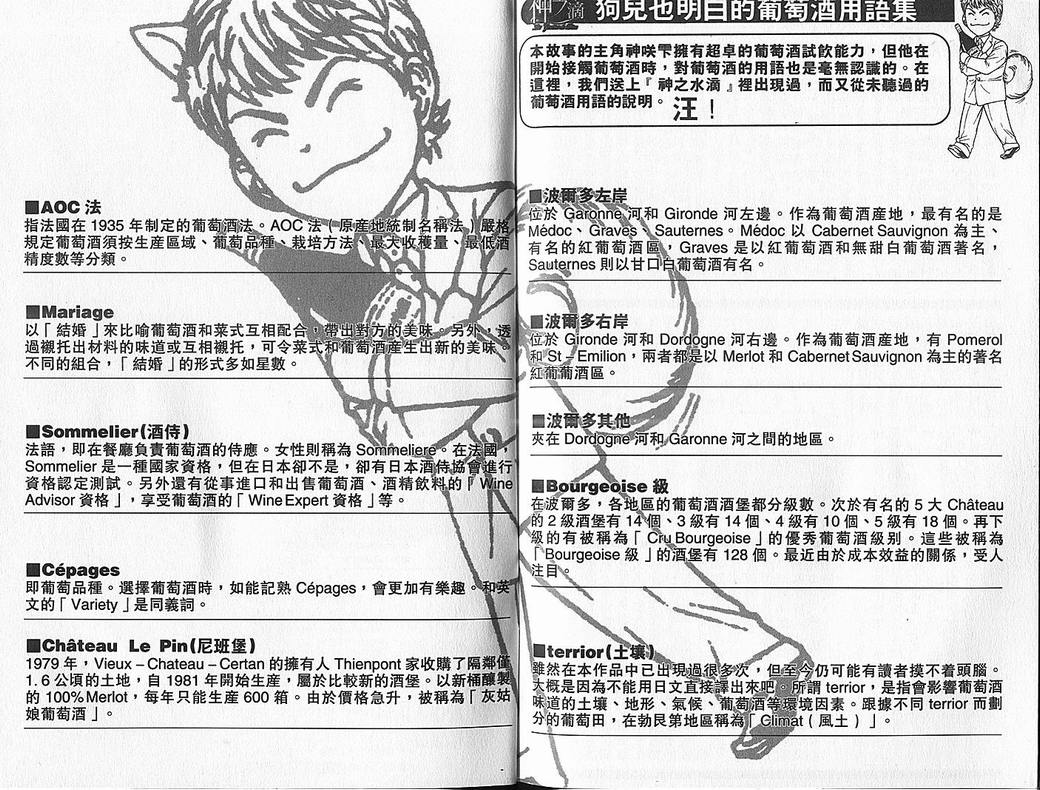 神の滴 狗兒也明白的葡萄酒用語集
本故事的主角神咲雫擁有超卓的葡萄酒試飲能力，但他在
開始接觸葡萄酒時，對葡萄酒的用語也是毫無認識的。在
這裡，我們送上『神之水滴』裡出現過，而又從未聽過的
葡萄酒用語的說明。汪！
■波爾多左岸
位於 Garonne 河和 Gironde 河左邊。作為葡萄酒產地，最有名的是
Médoc、Graves、Sauternes。Médoc 以 Cabernet Sauvignon 為主、
有名的紅葡萄酒區，Graves 是以紅葡萄酒和無甜白葡萄酒著名，
Sauternes 則以甘口白葡萄酒有名。
■波爾多右岸
位於 Gironde 河和 Dordogne 河右邊。作為葡萄酒產地，有 Pomerol
和 St－Emilion，兩者都是以 Merlot 和 Cabernet Sauvignon 為主的著名
紅葡萄酒區。
■波爾多其他
夾在 Dordogne 河和 Garonne 河之間的地區。
■Bourgeoise 級
在波爾多，各地區的葡萄酒酒堡都分級數。次於有名的 5 大 Château
的 2 級酒堡有 14 個、3 級有 14 個、4 級有 10 個、5 級有 18 個。再下
級的有被稱為「Cru Bourgeoise」的優秀葡萄酒級別。這些被稱為
「Bourgeoise 級」的酒堡有 128 個。最近由於成本效益的關係，受人
注目。
■terrior(土壤)
雖然在本作品中已出現過很多次，但至今仍可能有讀者摸不着頭腦。
大概是因為不能用日文直接譯出來吧。所謂 terrior，是指會影響葡萄酒
味道的土壤、地形、氣候、葡萄酒等環境因素。跟據不同 terrior 而劃
分的葡萄田，在勃艮第地區稱為「Climat（風土）」。
■AOC 法
指法國在 1935 年制定的葡萄酒法。AOC 法（原産地統制名稱法）嚴格
規定葡萄酒須按生産區域、葡萄品種、栽培方法、最大收穫量、最低酒
精度數等分類。
■Mariage
以「結婚」來比喻葡萄酒和菜式互相配合，帶出對方的美味。另外，透
過襯托出材料的味道或互相襯托，可令菜式和葡萄酒產生出新的美味。
不同的組合，「結婚」的形式多如星數。
■Sommelier(酒侍)
法語，即在餐廳負責葡萄酒的侍應。女性則稱為 Sommeliere。在法國，
Sommelier 是一種國家資格，但在日本卻不是，卻有日本酒侍協會進行
資格認定測試。另外還有從事進口和出售葡萄酒、酒精飲料的「Wine
Advisor 資格」，享受葡萄酒的「Wine Expert 資格」等。
■Cépages
即葡萄品種。選擇葡萄酒時，如能記熟 Cépages，會更加有樂趣。和英
文的「Variety」是同義詞。
■Château Le Pin(尼班堡)
1979 年，Vieux－Chateau－Certan 的擁有人 Thienpont 家收購了隔鄰僅
1.6 公頃的土地，自 1981 年開始生産，屬於比較新的酒堡。以新桶釀製
的 100% Merlot，每年只能生産 600 箱。由於價格急升，被稱為「灰姑
娘葡萄酒」。